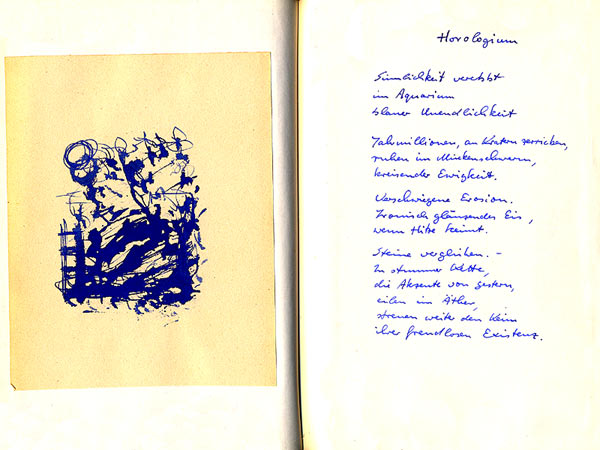 Horologium
Sinnlichkeit verebbt
im Aquarium
blauer Unendlichkeit
Jahrmillionen, an Kratern zerrieben,
ruhen im Mückenschwarm,
kreisender Ewigkeit.
Verschwiegene Erosion.
Ironisch glänzendes Eis,
wenn Hitze keimt.
Steine verglühen. –
In stummer Kette,
die Akzente von gestern,
eilen im Äther,
streuen weiter den Keim
ihrer grendlosen Existenz.